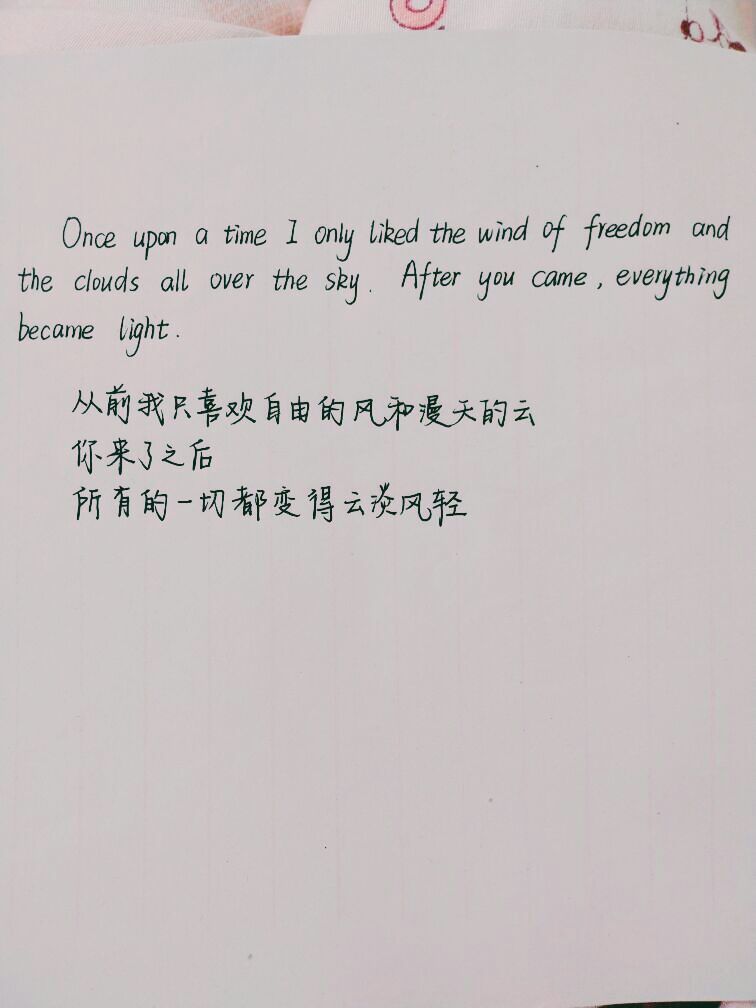 Once upon a time I only liked the wind of freedom and
the clouds all over the sky. After you came, everything
became light.
从前我只喜欢自由的风和漫天的云
你来了之后
所有的一切都变得云淡风轻